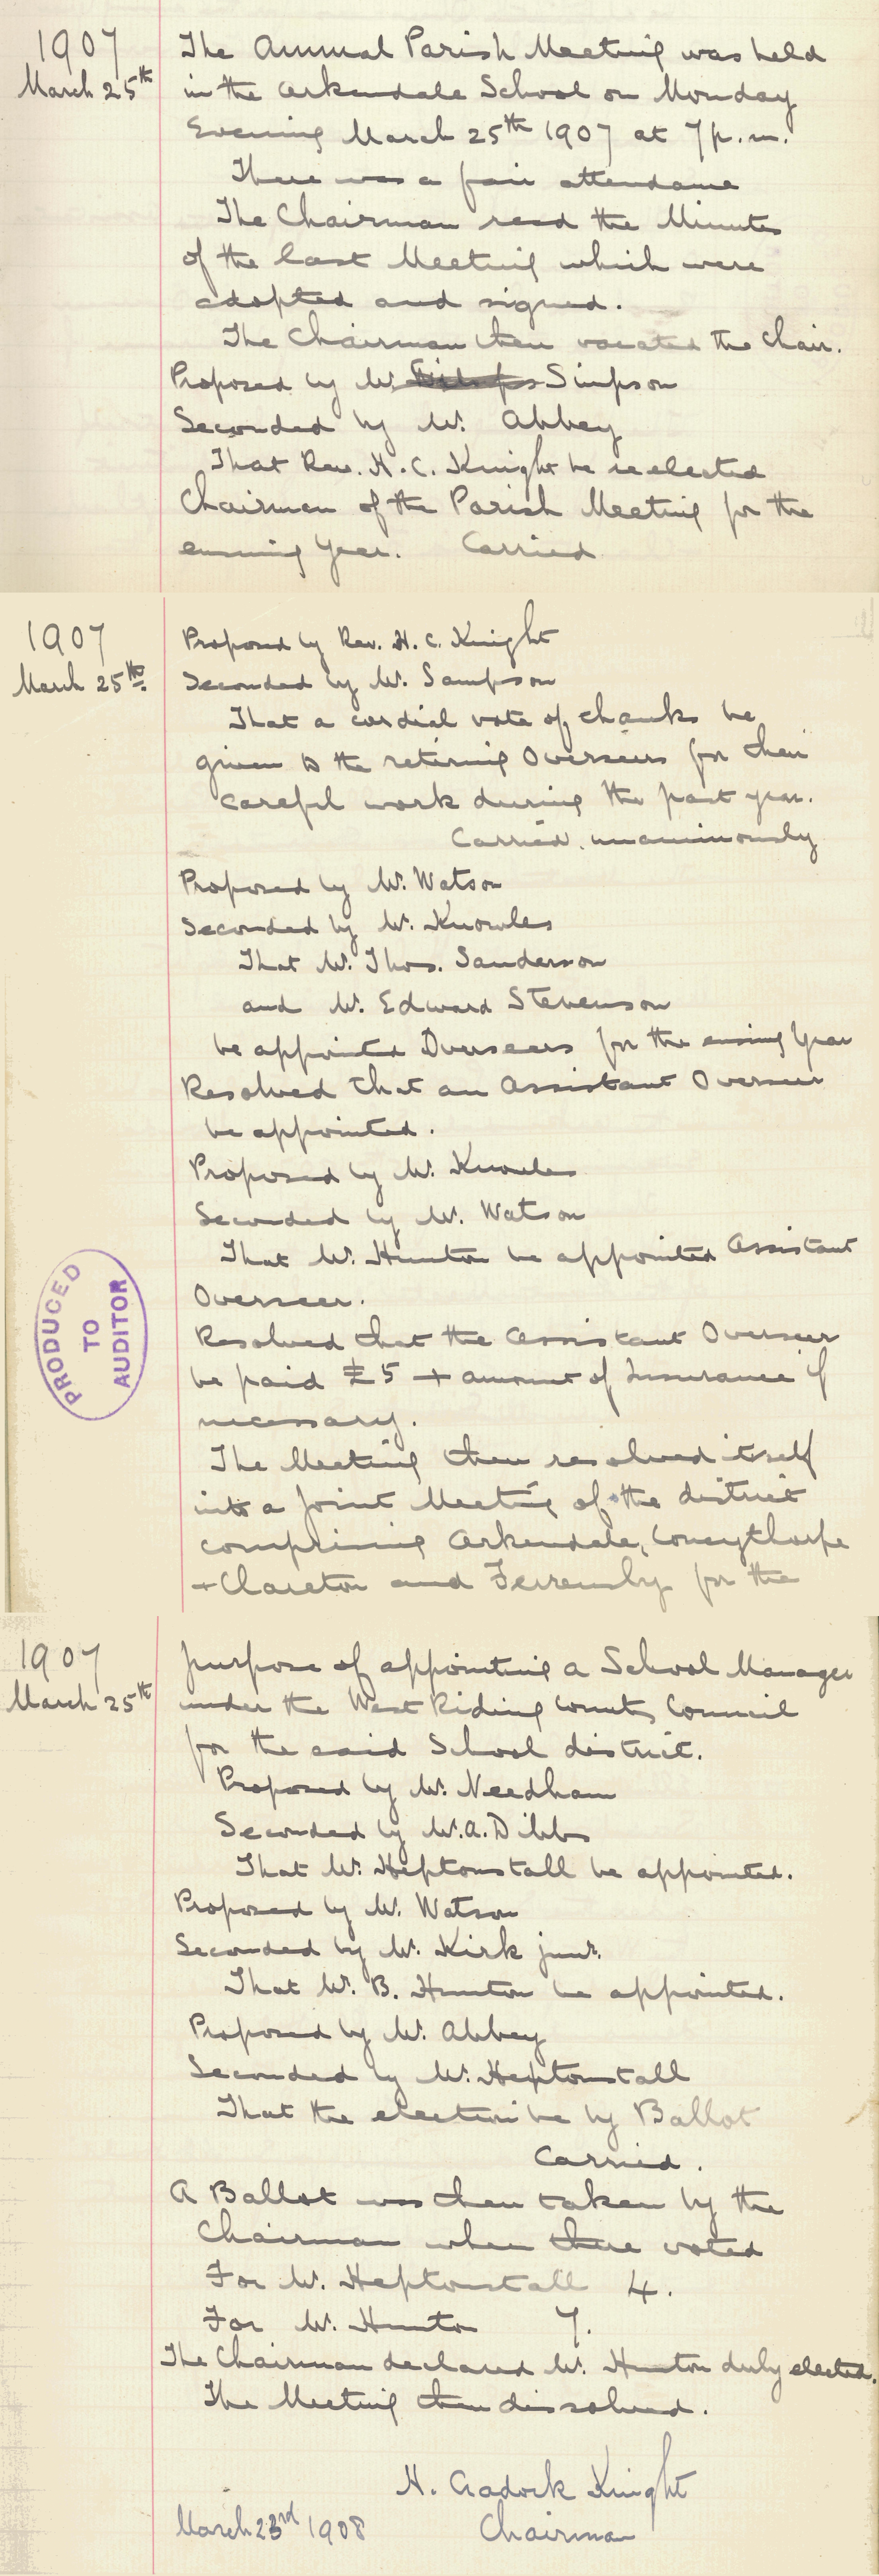 1907
March 25th
The Annual Parish Meeting was held
in the Arkendale School on Monday
Evening March 25th 1907 at 7 p.m.
There was a fair attendance
The Chairman read the Minutes
of the last Meeting which were
adopted and signed.
The Chairman then vacated the Chair.
Proposed by Mr. Simpson
Seconded by Mr. Abbey
That Rev. H. C. Knight be reelected
Chairman of the Parish Meeting for the
ensuing Year. Carried
1907
March 25th.
Proposed by Rev. H. C. Knight
Seconded by Mr. Sampson
That a cordial vote of thanks be
given to the retiring Overseers for their
careful work during the past year.
Carried unanimously
Proposed by Mr. Watson
Seconded by Mr. Knowles
That Mr. Thos. Sanderson
and Mr. Edward Stevenson
be appointed Overseers for the ensuing Year
Resolved that an Assistant Overseer
be appointed.
Proposed by Mr. Knowles
Seconded by Mr. Watson
That Mr. Hunton be appointed Assistant
Overseer.
Resolved that the Assistant Overseer
be paid £5 + amount of Insurance if
necessary.
The Meeting then resolved itself
into a Joint Meeting of the district
comprising Arkendale, Coneythorpe
+ Clareton and Ferrensby for the
PRODUCED
TO
AUDITOR
1907
March 25th
purpose of appointing a School Manager
under the West Riding County Council
for the said School district.
Proposed by Mr. Needham
Seconded by Mr. A. Dibbs
That Mr. Heptonstall be appointed.
Proposed by Mr. Watson
Seconded by Mr. Kirk junr.
That Mr. B. Hunton be appointed.
Proposed by Mr. Abbey
Seconded by Mr. Heptonstall
That the election be by Ballot
Carried.
A Ballot was then taken by the
Chairman when there voted
For Mr. Heptonstall 4.
For Mr. Hunton 7.
The Chairman declared Mr. Hunton duly elected.
The Meeting then dissolved.
H. Cradock Knight
March 23rd 1908 Chairman